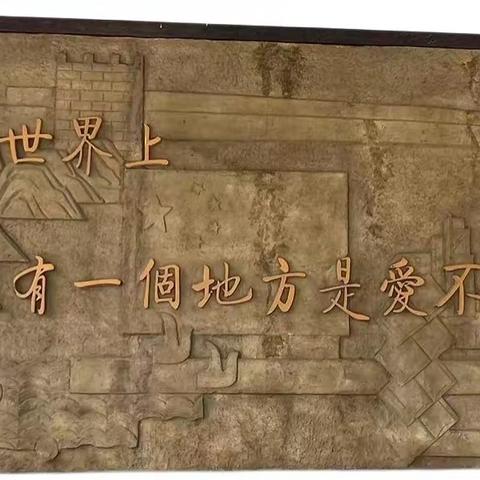 世界上
有一個地方是愛不